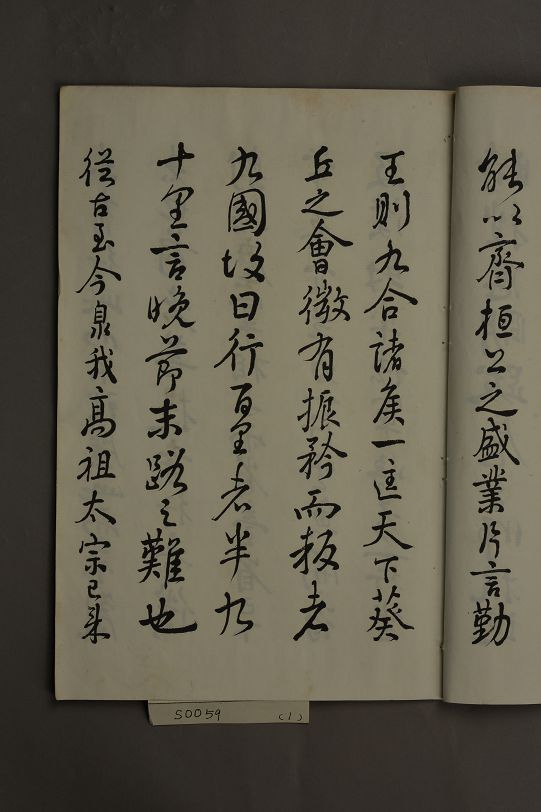 能以齊桓公之盛業片言勤
王則九合諸侯一匡天下葵
丘之會微有振矜而叛者
九國故曰行百里者半九
十里言晚節末路之難也
從古至今泉我高祖太宗已来
S0059 (1)